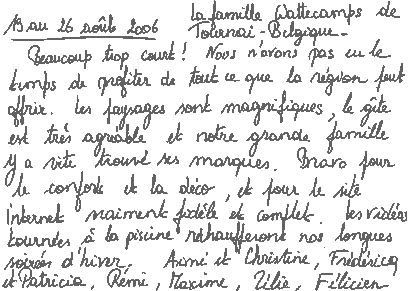 19 au 26 août 2006
La famille Wattecamps de
Tournai - Belgique.
Beaucoup trop court ! Nous n'avons pas eu le
temps de profiter de tout ce que la région peut
offrir. Les paysages sont magnifiques, le gîte
est très agréable et notre grande famille
y a vite trouvé ses marques. Bravo pour
le confort et la déco, et pour le site
internet vraiment fidèle et complet. Les vidéos
tournées à la piscine réhaufferont nos longues
soirées d'hiver. Aimé et Christine, Frédéricq
et Patricia, Rémi, Maxime, Zélie, Félicien